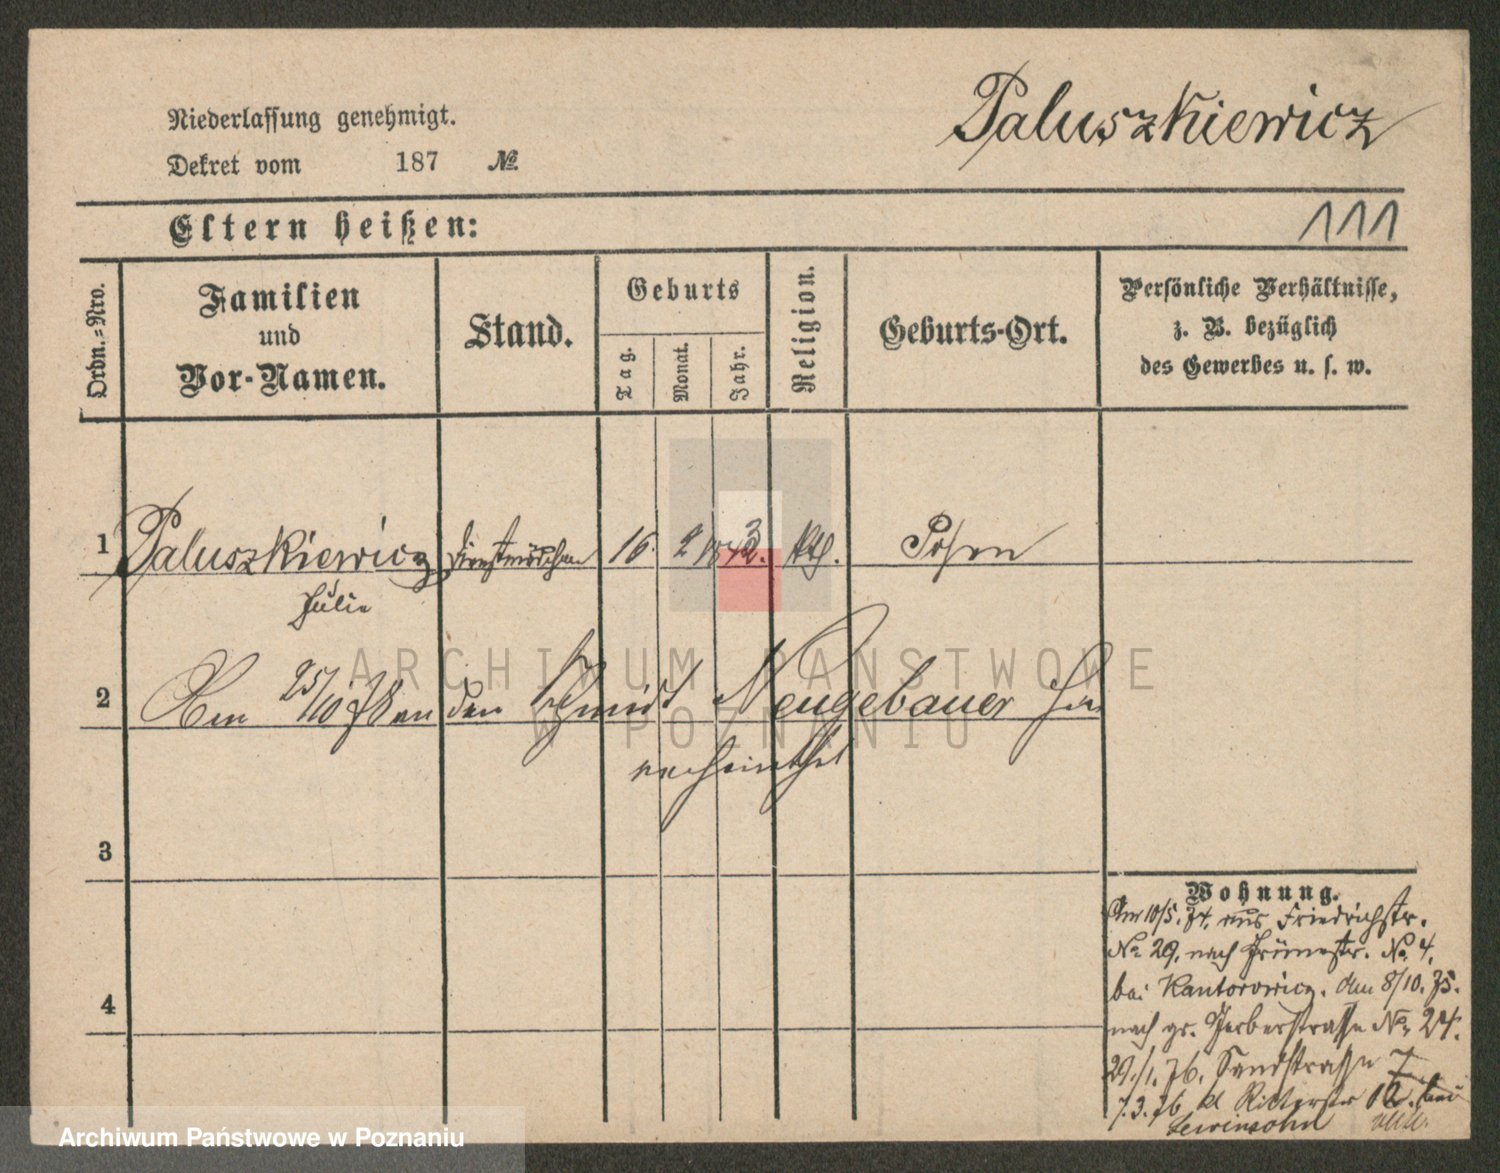 Paluszkiewicz
Niederlassung genehmigt.
Dekret vom 187 №
Eltern heißen:
111
Ordn.-Nro.
Familien
und
Vor-Namen.
Stand.
Geburts
Tag.
Monat.
Jahr.
Religion.
Geburts-Ort.
Persönliche Verhältnisse,
z. B. bezüglich
des Gewerbes u. s. w.
1 Paluszkiewicz Dienstmädchen 16. 2 1843. kth. Posen
Julie
2 Am 25/10 78 an den Schmidt Neugebauer hier
verheirathet
3
4
Wohnung.
Am 10/5. 74. aus Friedrichstr.
No 29. nach Grünestr. No. 4.
bei Kantorowicz. den 8/10. 75.
nach gr. Gerberstrasse No. 24.
29./1. 76. Sandstrasse 7
7.3.76 kl Ritterstr 12. bei
Lewinsohn
ARCHIWUM PAŃSTWOWE
W POZNANIU
Archiwum Państwowe w Poznaniu